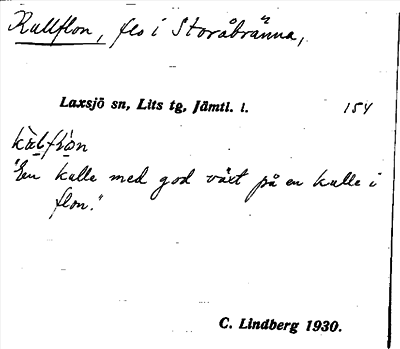 Kullflon, flo i Storåbränna,
Laxsjö sn, Lits tg, Jämtl. l. 154
"En kulle med god växt på en kulle i
flon."
C. Lindberg 1930.